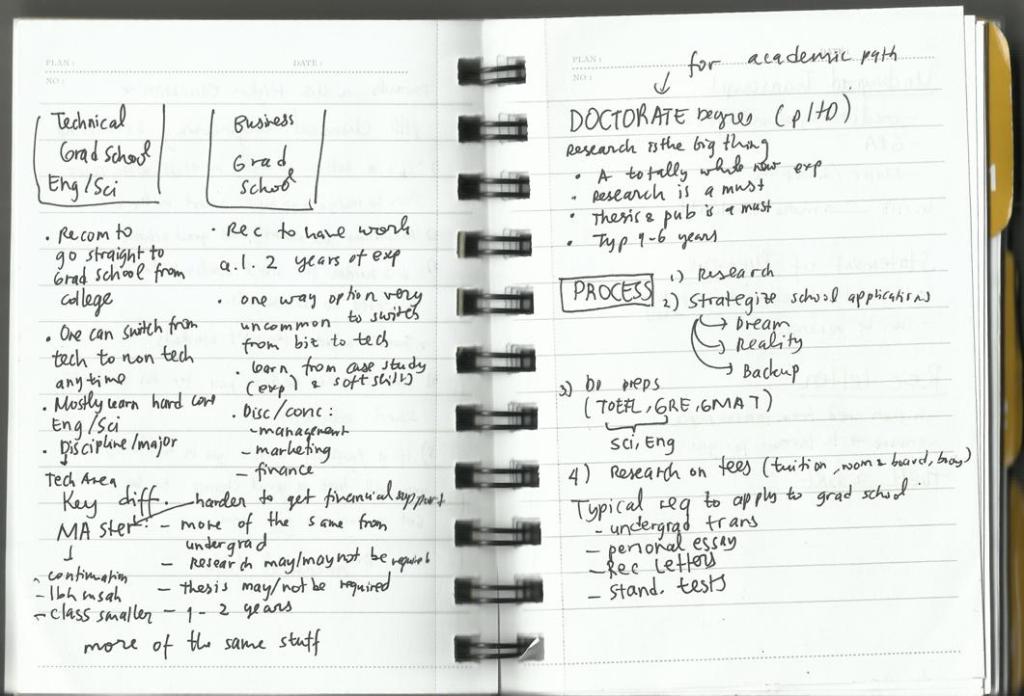 PLAN :
DATE :
NO :
Technical
Grad School
Eng/Sci
Business
Grad
School
• Recom to
go straight to
Grad School from
college
• One can switch from
tech to non tech
anytime
• Mostly learn hard core
Eng/Sci
• Discipline/major
Tech Area
• Rec to have work
a.l. 2 years of exp
• one way option very
uncommon to switch
from biz to tech
• learn from case study
(exp) & soft skills
• Disc/conc:
- management
- marketing
- finance
Key diff.
MASter:
- continuation
- lbh mudah
- class smaller
- harder to get financial support
- more of the same from
undergrad
- research may/may not be required
- thesis may/not be required
- 1-2 years
more of the same stuff
PLAN :
NO :
for academic path
DOCTORATE Degree (pHD)
Research is the big thing
• A totally whole new exp
• Research is a must
• Thesis & pub is a must
• Typ 4-6 years
PROCESS
1) Research
2) Strategize school applications
Dream
Reality
Backup
3) Do preps
(TOEFL, GRE, GMAT)
Sci, Eng
4) Research on fees (tuition, room & board, )
Typical req to apply to grad school.
- undergrad trans
- personal essay
- Rec Letters
- Stand. tests